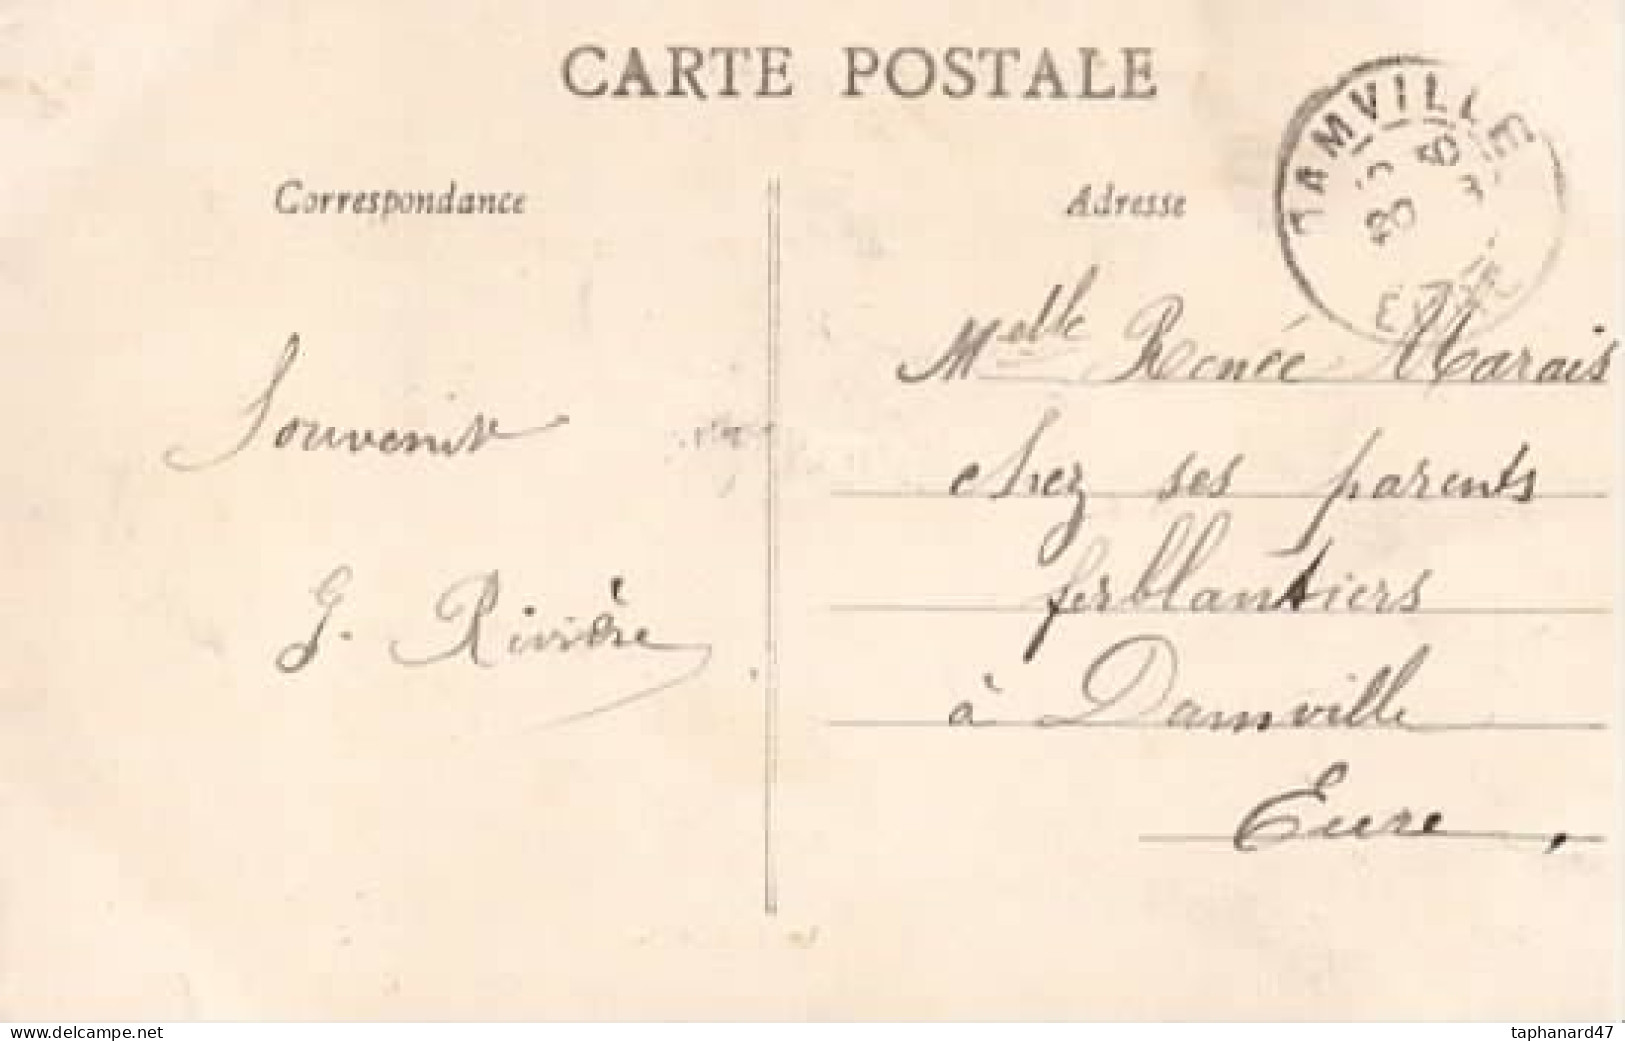 CARTE POSTALE
Correspondance
Souvenir
G. Rivière
Adresse
DAMVILLE
EURE
Melle Renée Marais
chez ses parents
ferblantiers
à Damville
Eure,
www.delcampe.net
taphanard47